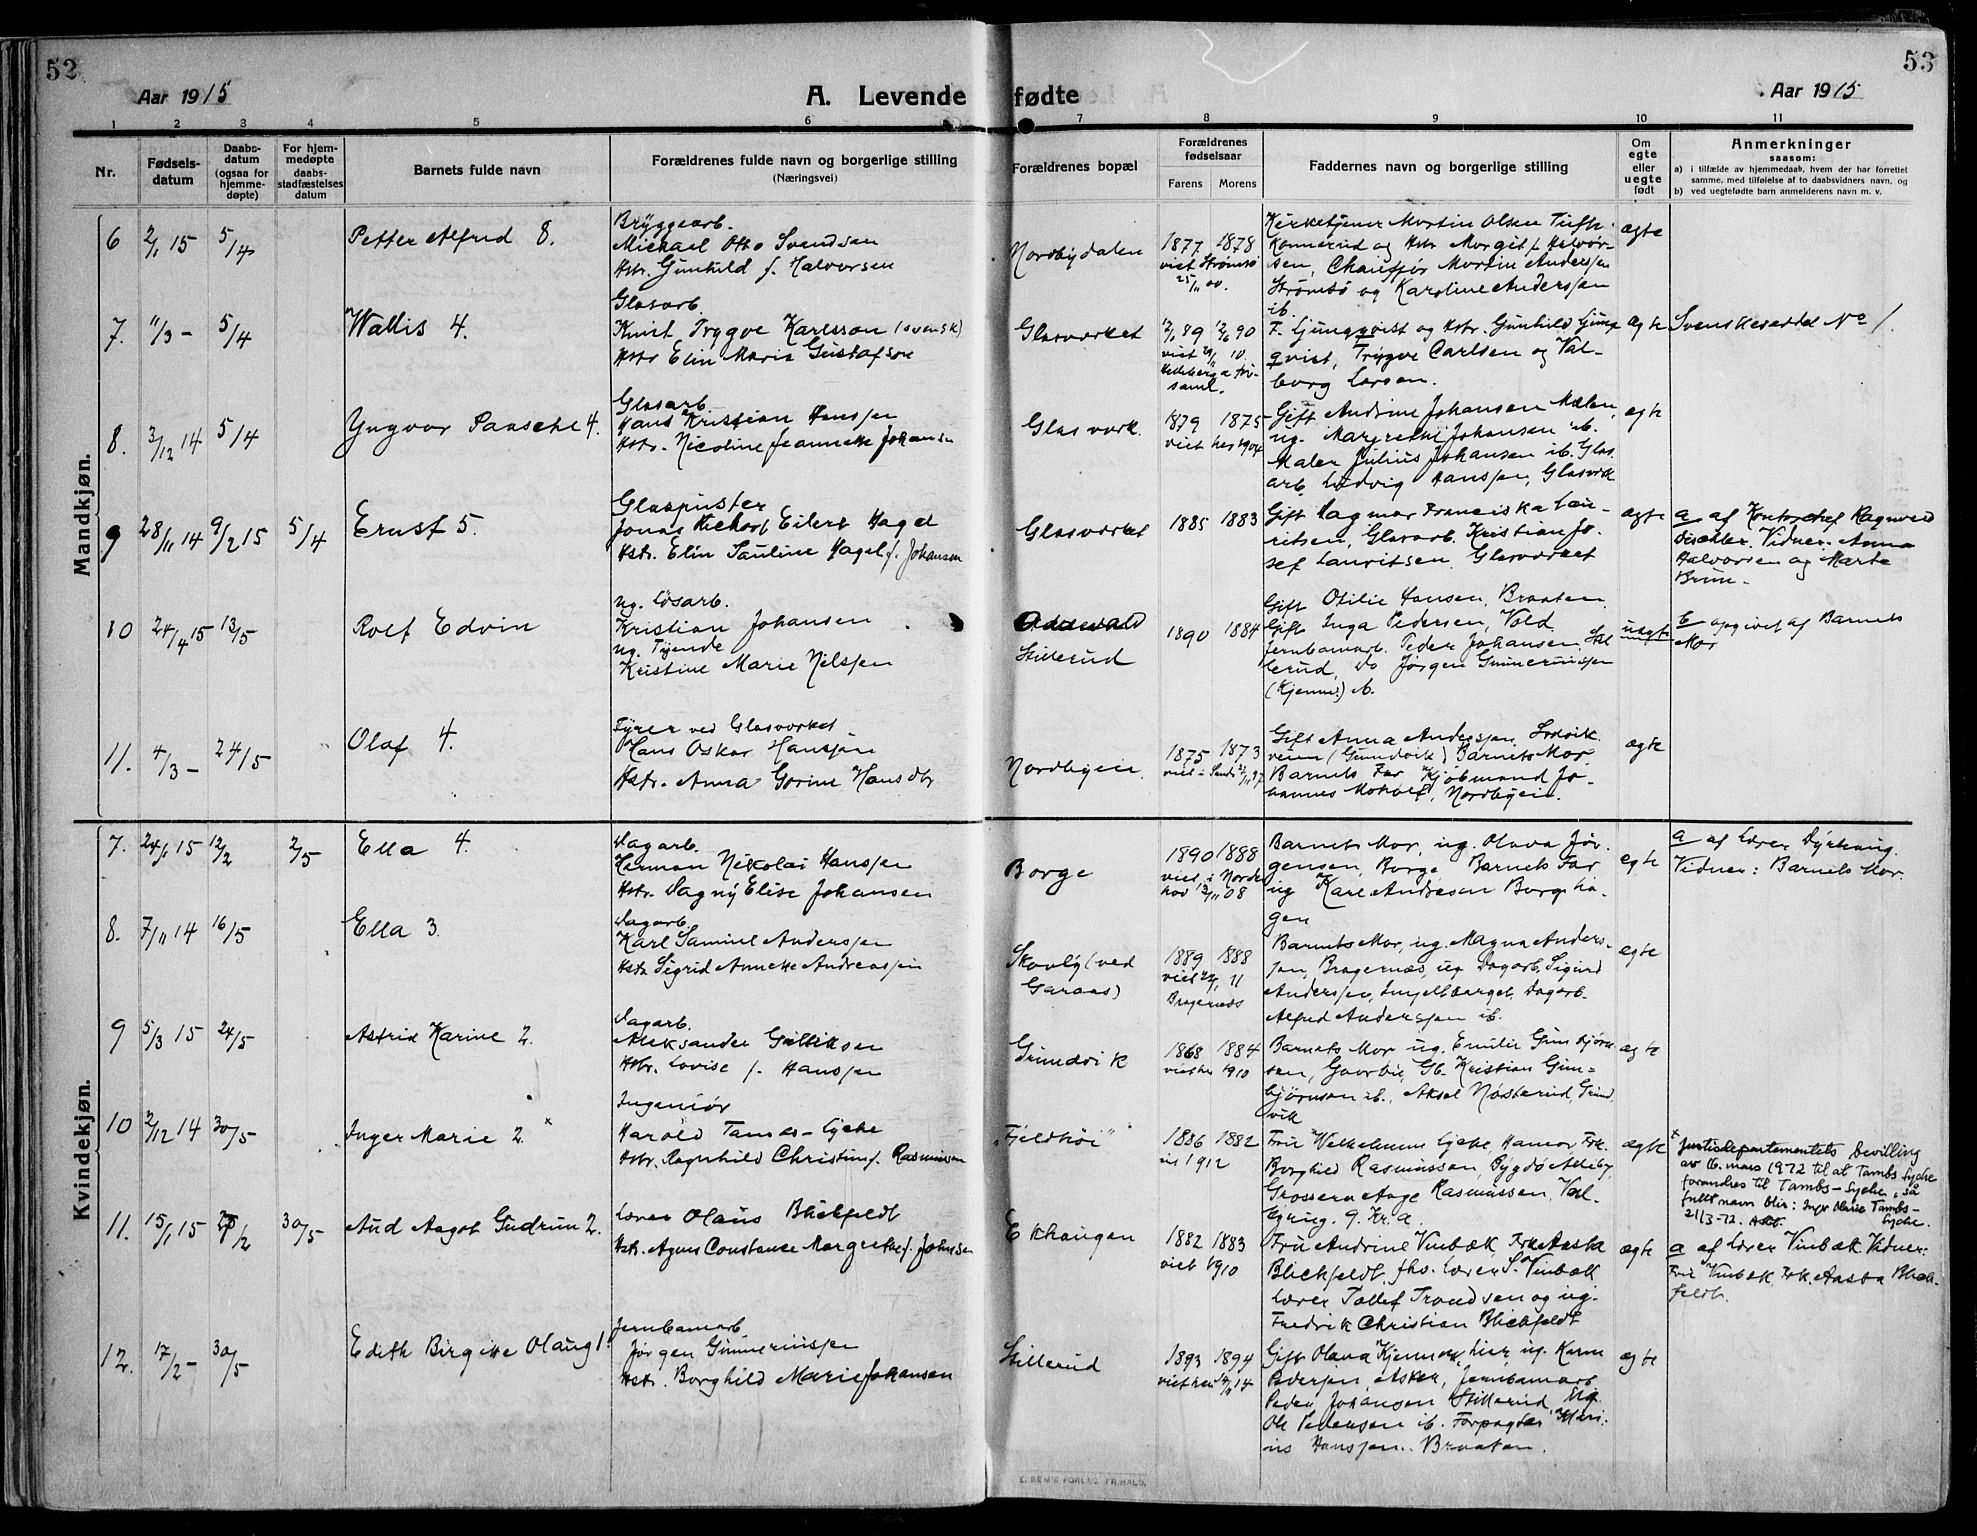 52
53
Aar 1915
A. Levende fødte
Aar 1915
1 2 3 4 5 6 7 8 9 10 11
Nr.
Fødsels-
datum
Daabs-
datum
(ogsaa for
hjemme-
døpte)
For hjem-
medøpte
daabs-
stadfæstelses
datum
Barnets fulde navn
Forældrenes fulde navn og borgerlige stilling
(Næringsvei)
Forældrenes bopæl
Forældrenes
fødselsaar
Farens Morens
Faddernes navn og borgerlige stilling
Om
egte
eller
uegte
født
Anmerkninger
saasom:
a) i tilfælde av hjemmedaab, hvem der har forrettet
samme, med tilføielse af to daabsvidners navn, og
b) ved uegtefødte barn anmelderens navn m. v.
Mandkjøn.
6 2/1 15 5/4
Petter Alfred 8.
Bryggearb.
Michael Otto Svendsen
Hstr. Gunhild f. Halvorsen
Nordbydalen
1877 1878
viet Strømsø
25/11 00.
Kirketjener Martin Olsen Tufte
Konnerud og Hstr Margit f. Halvor-
sen, Chauffør Martin Andersen
Strømsø og Karoline Andersen
ib.
ægte
7. 11/3 - 5/4
Wallis 4.
Glasarb.
Knut Trygve Karlsson (svensk)
Hstr Elin Maria Gustafson
Glasværket
12/1 89 12/6 90
F. Ljungqvist og Hstr. Gunhild Ljung
qvist, Trygve Carlsen og Val-
borg Larsen.
ægte
Svenskeseddel No 1.
8. 3/12 14 5/4
Yngvar Paasche 4.
Glasarb.
Hans Kristian Hanssen
Hstr. Nicoline Jeannette Johansen
Glasværk.
1879 1875
viet her 1904
Gift Andrine Johansen Mælen,
ug. Margrethe Johansen ib.
Maler Julius Johansen ib. Glas
arb. Ludvig Hanssen, Glasværk
ægte
9 28/11 14 9/2 15 5/4
Ernst 5.
Glaspuster
Jonas Richard Eilert Hagel
Hstr. Elin Pauline Hagel f. Johansen
Glasværket
1885 1883
Gift Dagmar Franciska Lau-
ritsen, Glasarb. Kristian Jo-
sef Lauritsen. Glasværket
ægte
a af Kontorchef Ragnvald
Vidner: Anna
Halvorsen og Marte
Bruun.
10 24/4 15 13/5
Rolf Edvin
ug. Løsarb.
Kristian Johansen
ug. Tjende
Kristine Marie Nilssen
Stillerud
1890 1884
Gift Otilie Hansen, Braaten
Gift Inga Pedersen, Vold
Jernbanarb. Peder Johansen, Stil
lerud, Do Jørgen Gunneriussen
(Kjenner) ib.
uegte
b opgivet af Barnets
Mor
11. 4/3 - 24/5
Olaf 4.
Fyrer ved Glasværket
Hans Oskar Hanssen
Hstr. Anna Gorine Hansdtr
Nordbyeien.
1875 1873
Gift Anna Anderssen, Lodvik
veien (Grundvik) Barnets Mor
Barnets Far, Kjøbmand Jo-
hannes Moholt, Nordbyeien.
ægte
Kvindekjøn.
7. 24/1 15 12/2 2/5
Ella 4.
Dagarb.
Herman Nikolai Hanssen
Hstr. Dagny Elise Johansen
Borge
1890 1888
viet i Norder
hov 13/11 08
Barnets Mor, ug. Olava Jør-
gensen, Borge, Barnets Far
ug Karl Andresen Borgeha-
gen
egte
a af Lærer Dyrhaug.
Vidner: Barnets Mor.
8. 7/11 14 16/5
Ella 3.
Dagarb.
Karl Samuel Anderssen
Hstr Sigrid Annette Andreassen
Skovly (ved
Garaas)
1889 1888
viet 22/1 11
Bragernæs
Barnets Mor, ug. Magna Anders-
sen, Bragernæs, ug Dagarb. Sigurd
Anderssen, Dagarb.
Alfred Anderssen ib.
ægte
9 5/3 15 24/5
Astrid Karine 2.
Dagarb.
Aleksander Gulliksen
Hstr. Lovise f. Hanssen
Grundvik
1868 1884
viet her 1910
Barnets Mor ug. Emilie Gunbjørn
sen, Gb. Kristian Gun-
bjørnsen ib., Aksel Nøsterud, Grund
vik
ægte
10 2/12 14 30/5
Inger Marie 2. x
Ingeniør
Harald Tambs-Lyche
Hstr. Ragnhild Christine f. Rasmussen
„Fjeldhøi"
1886 1882
vi 1912
Fru Wilhelmine Lyche, Hamar, Frk.
Borghild Rasmussen, Bygdø Alleby,
Grosserer Aage Rasmussen, Val-
kyrieg. 9. Kr.a.
ægte
x Justisdepartementets bevilling
av 16. mars 1972 til at Tambs Lyche
forandres til Tambs-Lyche, så
fullt navn blir: Inger Marie Tambs-
Lyche.
21/3-72.
11. 15/1 15 28/2 30/5
Aud Aagot Gudrun 2.
Lærer Olaus Blichfeldt
Hstr. Agnes Constance Margrethe f. Johnsen
Ekhaugen
1882 1883
viet 1910
Fru Andrine Vinbæk, Frk Aasta
Blichfeldt, fhv. Lærer S. Vinbæk
Lærer Tollef Trondsen og ug.
Fredrik Christian Blichfeldt
ægte
a af Lærer Vinbæk. Vidner:
Fru Vinbæk, Frk. Aasta Blich-
feldt.
12. 17/2 - 30/5
Edith Birgitte Olaug 1.
Jernbanarb.
Jørgen Gunneriussen
Hstr. Borghild Marie Johansen
Stillerud
1893 1894
Gift Olava Kjenner, her, ug. Karen
Pedersen, Asker, Jernbanarb.
Peder Johansen Stillerud, Eier
Ole Pedersen ib. Forpagter Mari-
us Hanssen. Braaten.
ægte
E. SEM'S FORLAG, FR.HALD.